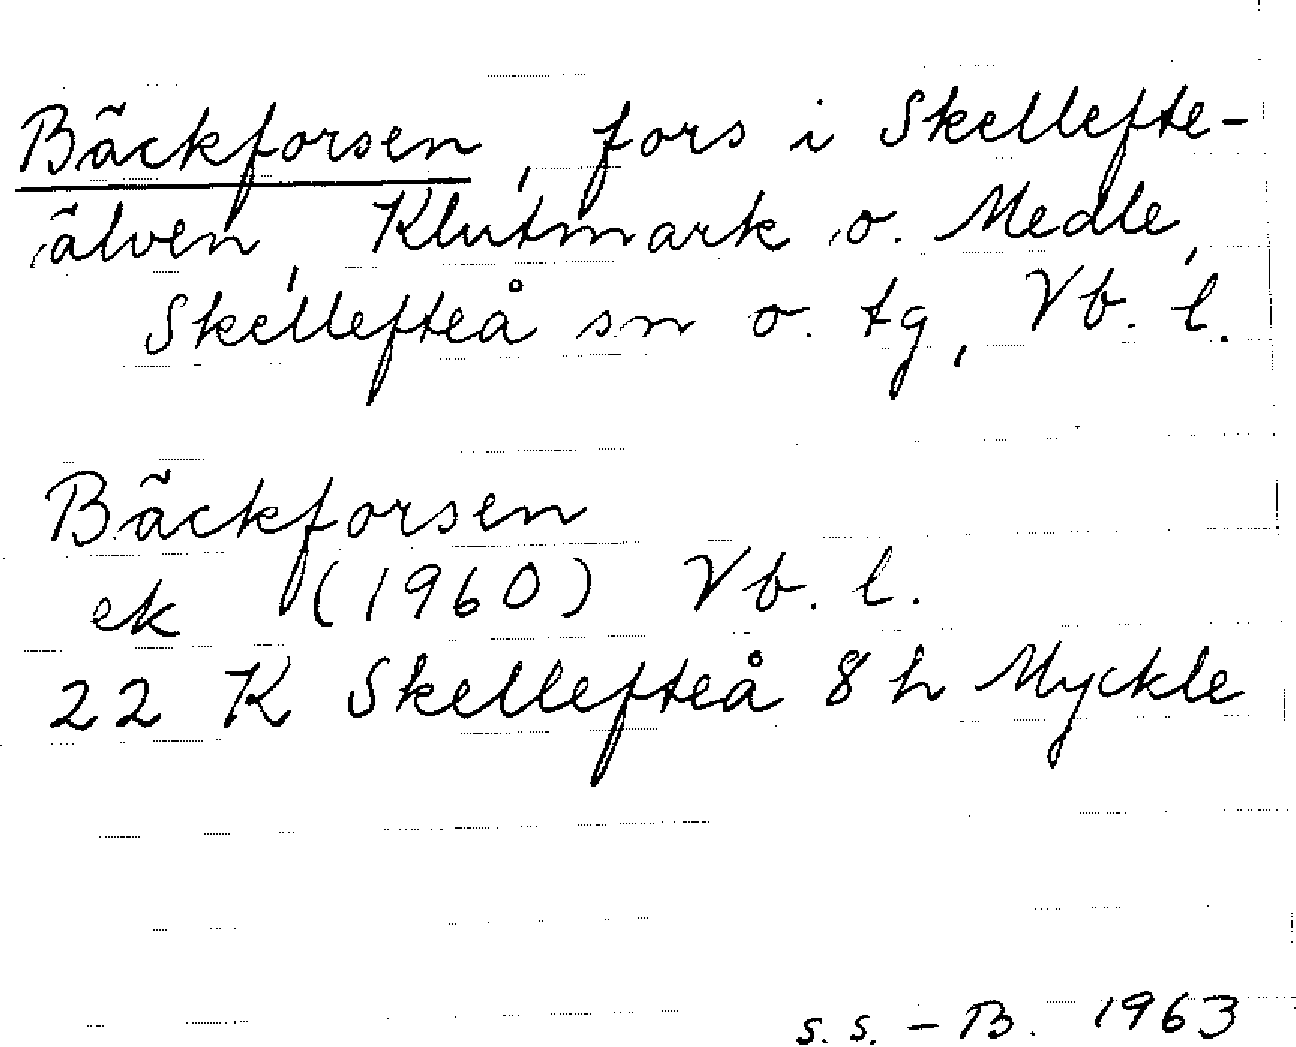 Bäckforsen, fors i Skellefte-
älven, Klutmark o. Medle,
Skellefteå sn o. tg, Vb. l.
Bäckforsen
ek (1960) Vb. l.
22 K Skellefteå 8 h Myckle
s. s. - B. 1963